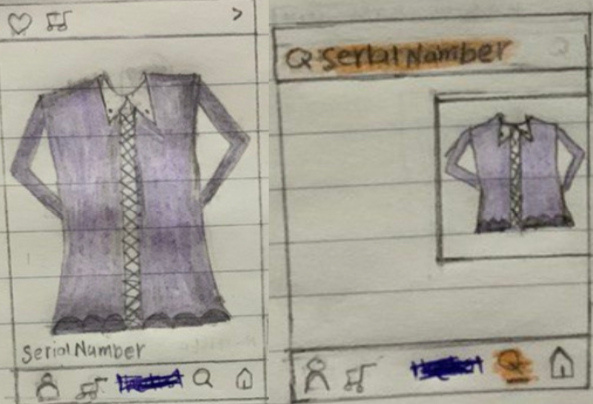 Serial Number
Serial Number